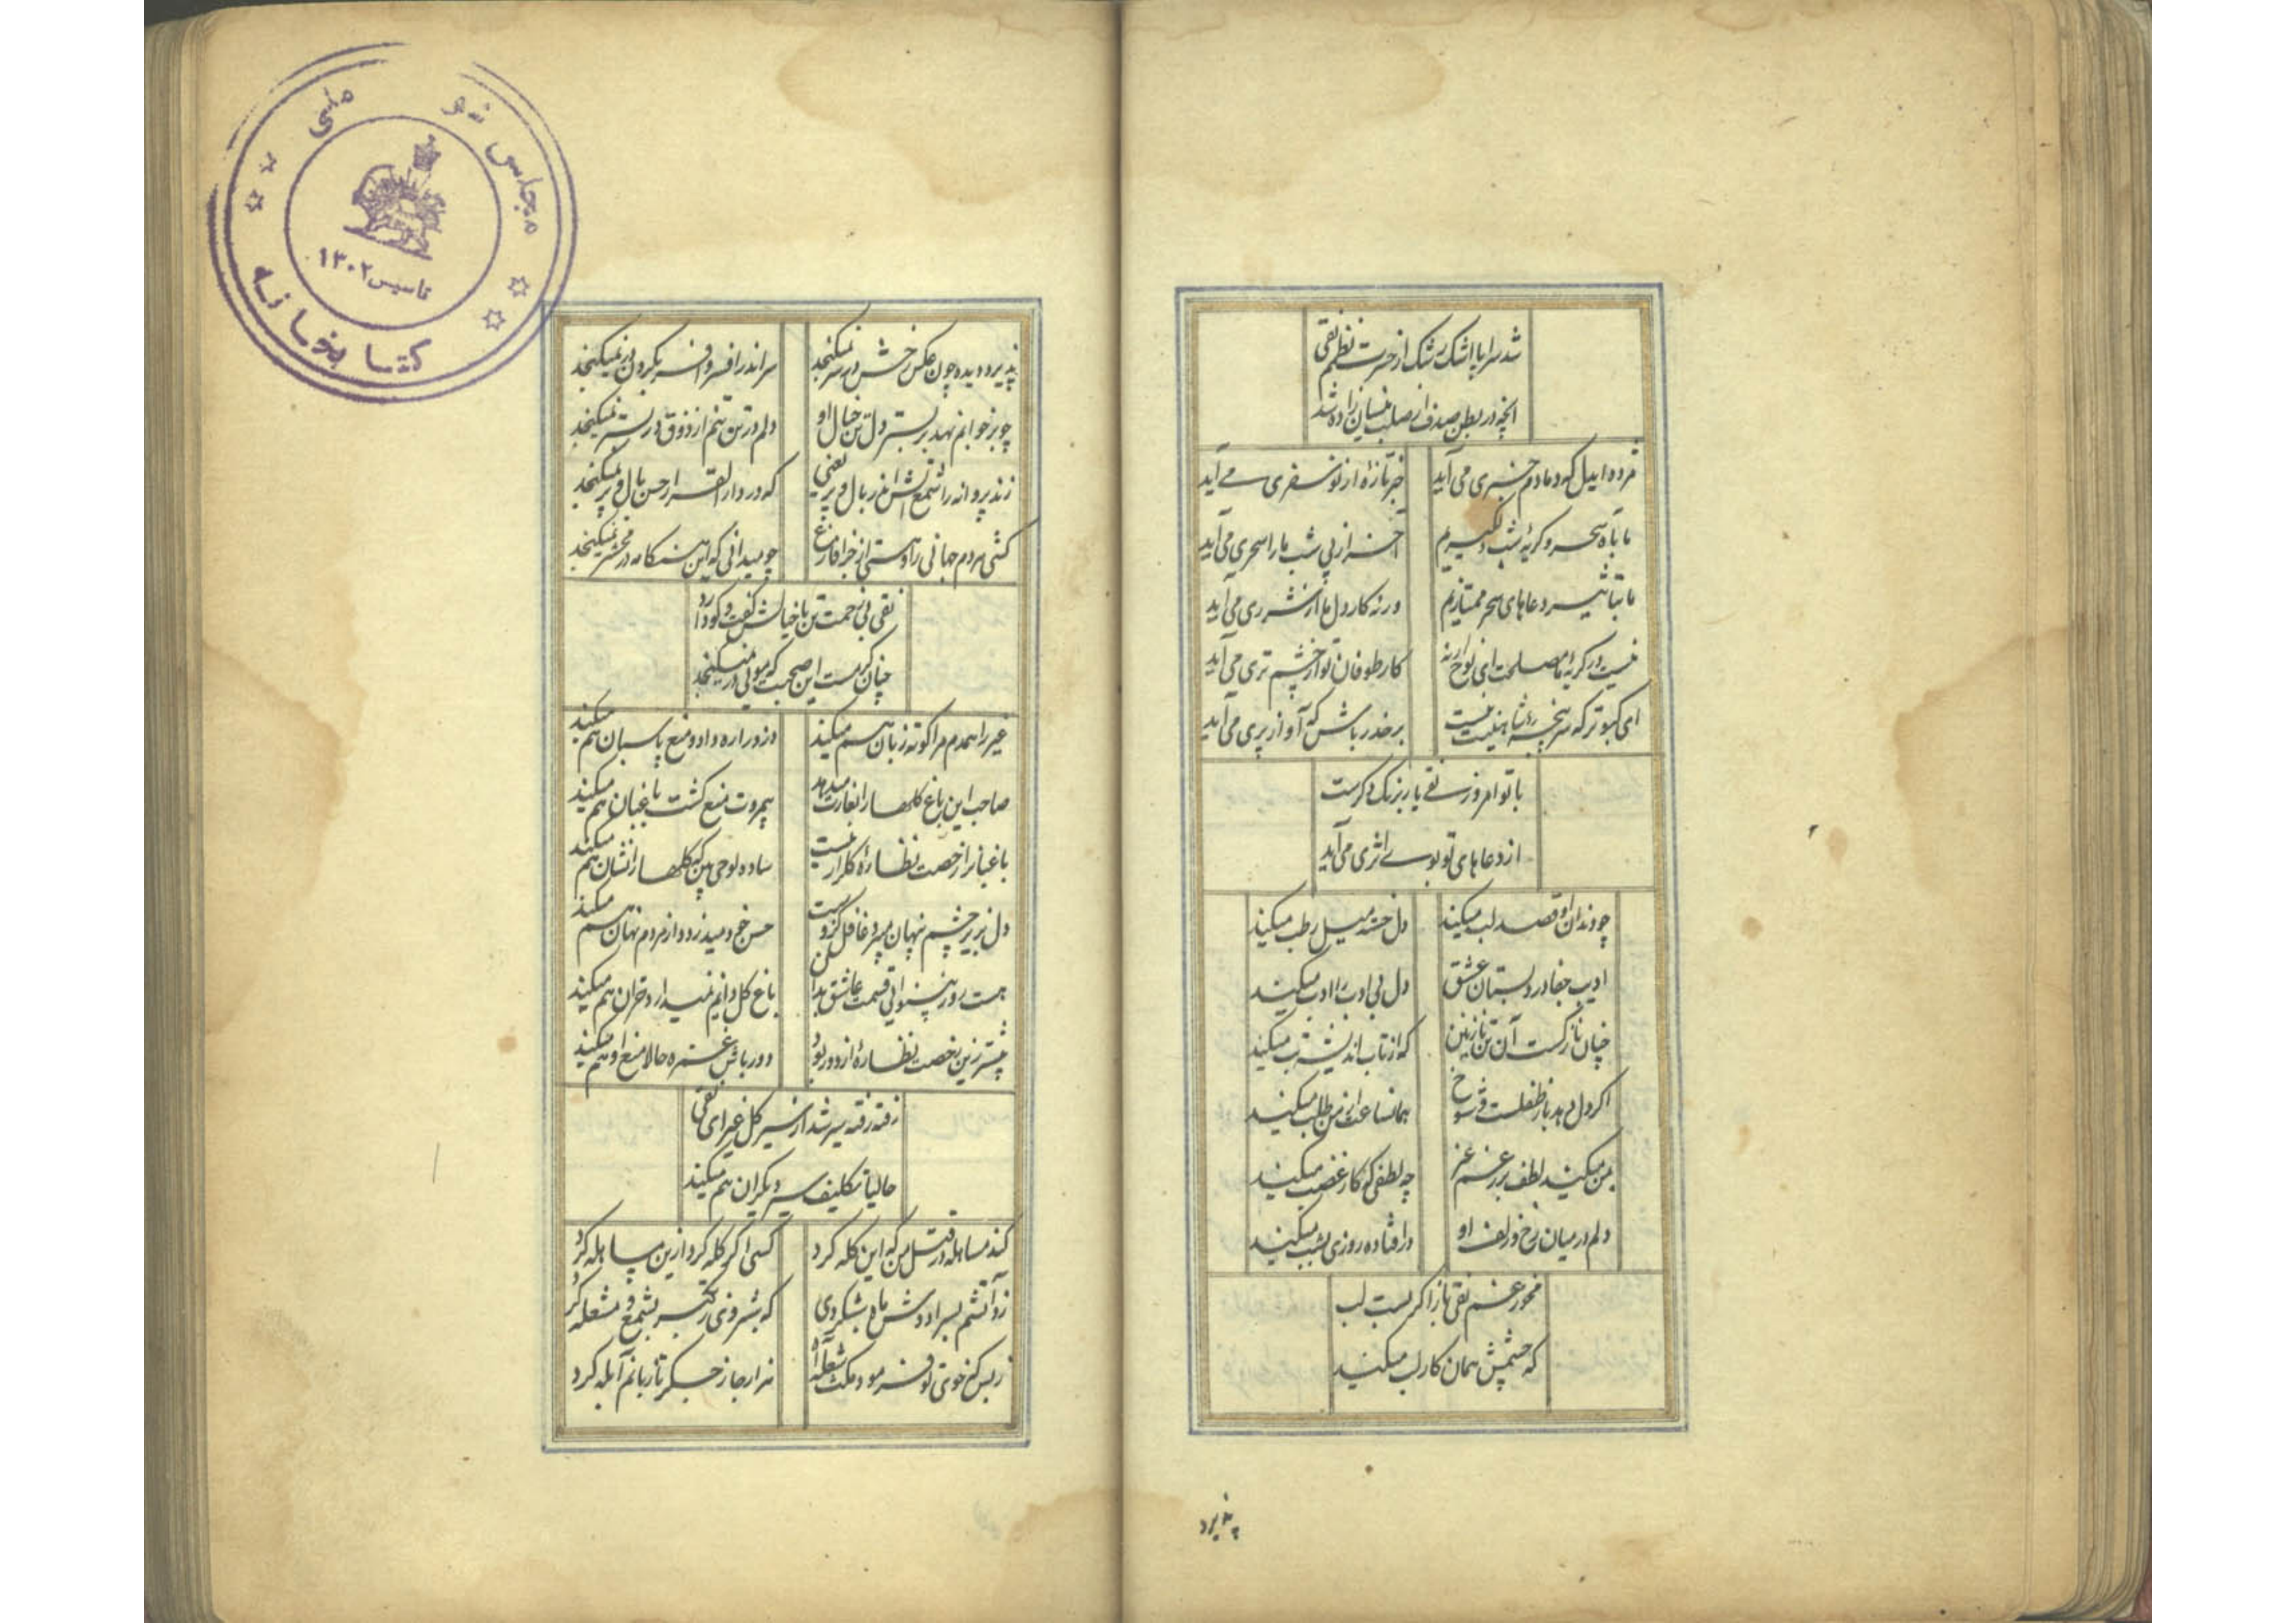 شد سراپا اشک رشک از حسرت نظم نقی
آنچه در بطن صدف از صلب نیسان زاده شد
مژده ایدل که دمادم خبری می آید
خبر تازهٔ از نو سفری می آید
ما بآه سحر و گریهٔ شب دلگیریم
آخر از پی شب ما را سحری می آید
ما بتاثیر دعاهای سحر ممتازیم
ورنه کار دل ما از شرری می آید
نیست در گریهٔ ما مصلحت ای نوح ارنه
کار طوفان تو از چشم تری می آید
ای کبوتر که سر پنجهٔ شاهینت نیست
بر حذر باش که آواز پری می آید
با تو امروز نقی یار برنگ دگرست
از دعاهای تو بوی اثری می آید
چو دندان او قصد لب میکند
دل خسته میل رطب میکند
ادیب جفا در دبستان عشق
دل بی ادب را ادب میکند
چنان نازکست آن تن نازنین
که از تاب اندیشه تب میکند
اگر دل دهد باز طفلست و شوخ
همانساعت از من طلب میکند
بمن میکند لطف بر رغم غیر
چه لطفی که کار غضب میکند
دلم در میان رخ و زلف او
در افتاده روزی بشب میکند
مخور غم نقی باز اگر بست لب
که چشمش همان کار لب میکند
پذیرد
پذیرد دیده چون عکس رخش در سر نمیگنجد
سر اندر افسر و افسر بگردون بر نمیگنجد
چو بر خوابم نهد بر بستر دل تن خیال او
دلم در تن تنم از ذوق در بستر نمیگنجد
زند پروانه را شمع آتش اندر بال و پر یعنی
که در دار القرار حسن بال و پر نمیگنجد
کشی مردم جهانی را و هستی از جزا فارغ
چو میدانی که این هنگامه در محشر نمیگنجد
نقی بی زحمت تن با خیالش گفت و گو دارد
چنان گرمست این صحبت که مویی در نمیگنجد
غیر را همدم مرا کوته زبان هم میکند
دزد را ره داد و منع پاسبان هم میکند
صاحب این باغ گلها را بغارت میدهد
بیمروت منع گشت باغبان هم میکند
باغبانرا رخصت نظارهٔ گلزار نیست
ساده لوحی بین که گلها را نشان هم میکند
دل بزیر چشم پنهان میبرد غافل کزوست
حسن خود میدزدد از مردم نهان هم میکند
هست روز بینوایی قسمت عاشق بدان
باغ گل دایم نمیدارد خزان هم میکند
پیشتر زین رخصت نظارهٔ از دور بود
دور باش غمزه حالا منع او هم میکند
رفته رفته سیر شد از سیر گل غیر ای نقی
حالیا تکلیف سیر دیگران هم میکند
کند مساهله در قتل من که این گله کرد
کسی اگر گله کرد ازین مساهله کرد
زد آتشم بسرا دوش ماه شبگردی
که شبروی نکند بشمع و مشعله کرد
ز بس که خوی تو فرمود مکث شعلهٔ آه
هزار جا ز جگر تا زبانم آبله کرد
مجلس شورای ملی
تاسیس ۱۳۰۲
کتابخانه